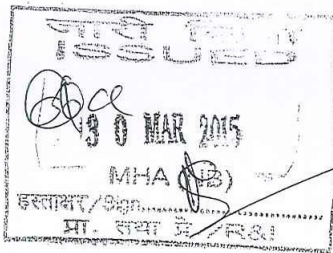 जारी
ISSUED
30 MAR 2015
MHA (IS)
हस्ताक्षर/Sign............
प्रा. तथा प्रे./R&I